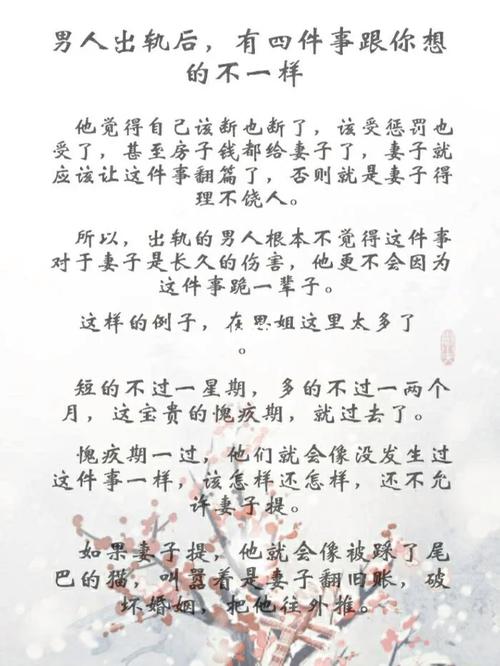 男人出轨后，有四件事跟你想
的不一样
他觉得自己该断也断了，该受惩罚也
受了，甚至房子钱都给妻子了，妻子就
应该让这件事翻篇了，否则就是妻子得
理不饶人。
所以，出轨的男人根本不觉得这件事
对于妻子是长久的伤害，他更不会因为
这件事跪一辈子。
这样的例子，在思姐这里太多了
。
短的不过一星期，多的不过一两个
月，这宝贵的愧疚期，就过去了。
愧疚期一过，他们就会像没发生过
这件事一样，该怎样还怎样，还不允
许妻子提。
如果妻子提，他就会像被踩了尾
巴的猫，叫嚣着是妻子翻旧账，破
坏婚姻，把他往外推。